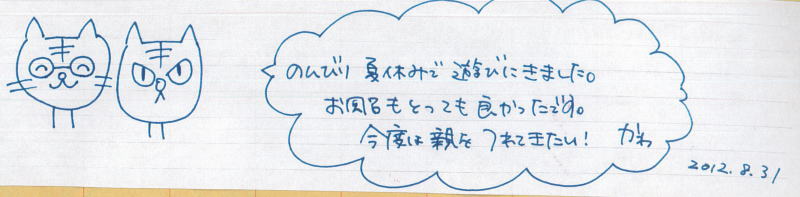 のんびり 夏休みで 遊びにきました。
お風呂もとっても良かったです。
今度は親をつれてきたい! かわ
2012.8.31